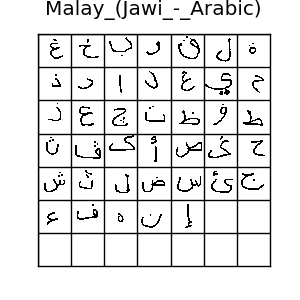 Malay_(Jawi_-_Arabic)
غ خ ب ق ة
ذ ا ي م
ز ع چ ت ظ ۏ ط
ث ڤ ک أ ص ح
ش ل ض س ئ ج
ء ف ه ن إ